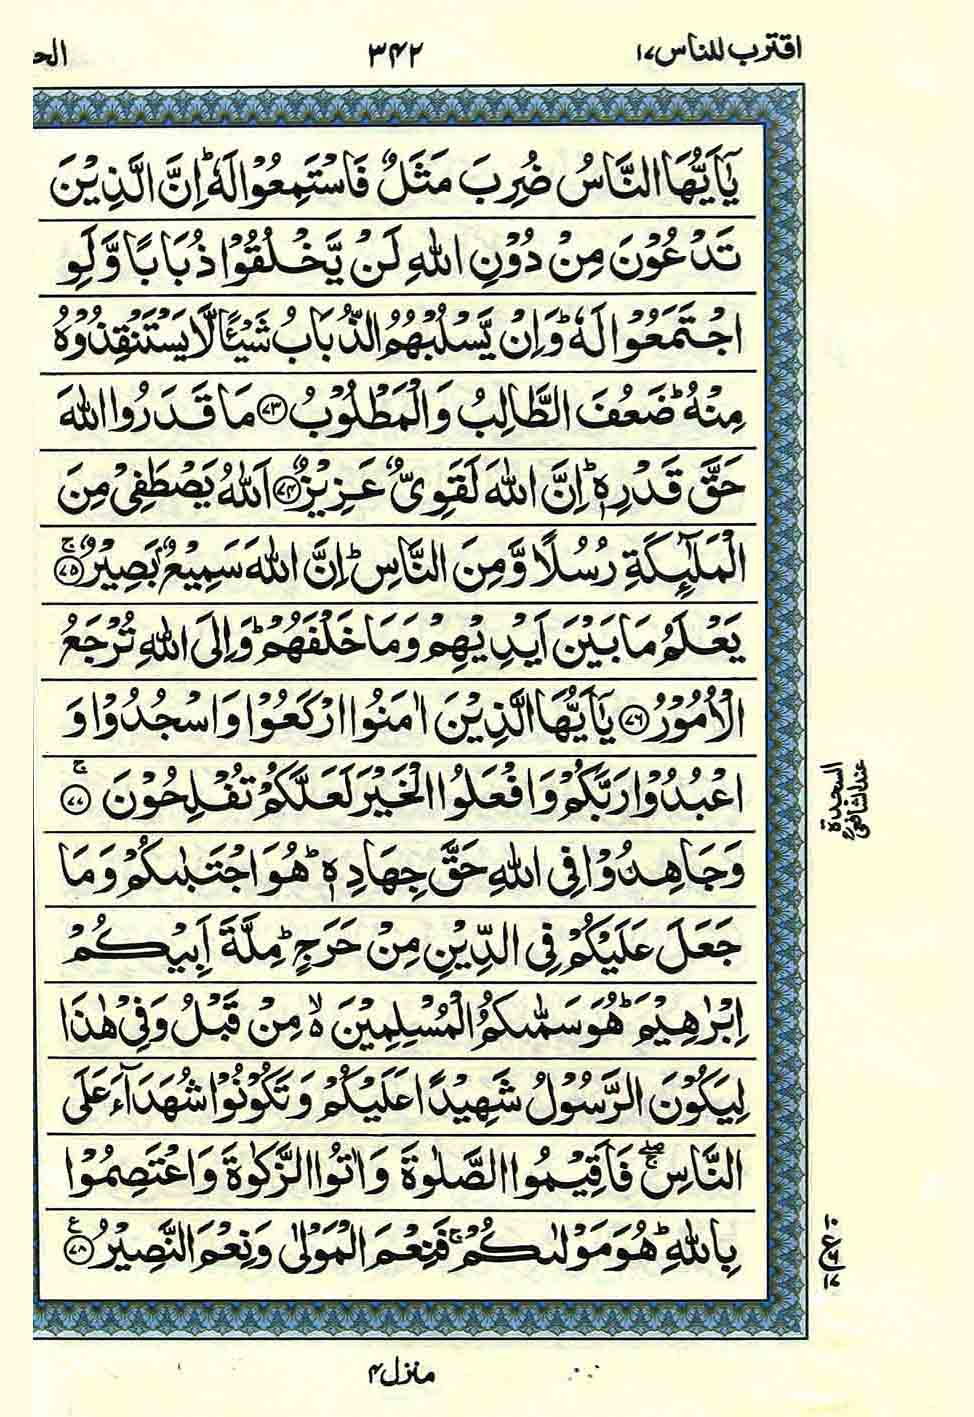 اقترب للناس ١٧
٣٤٢
الحـ
يٰۤاَيُّهَا النَّاسُ ضُرِبَ مَثَلٌ فَاسْتَمِعُوْا لَهٗ ؕ اِنَّ الَّذِيْنَ
تَدْعُوْنَ مِنْ دُوْنِ اللّٰهِ لَنْ يَّخْلُقُوْا ذُبَابًا وَّلَوِ
اجْتَمَعُوْا لَهٗ ؕ وَاِنْ يَّسْلُبْهُمُ الذُّبَابُ شَيْـًٔا لَّا يَسْتَنْقِذُوْهُ
مِنْهُ ؕ ضَعُفَ الطَّالِبُ وَالْمَطْلُوْبُ ﴿٧٣﴾ مَا قَدَرُوا اللّٰهَ
حَقَّ قَدْرِهٖ ؕ اِنَّ اللّٰهَ لَقَوِيٌّ عَزِيْزٌ ﴿٧٤﴾ اَللّٰهُ يَصْطَفِيْ مِنَ
الْمَلٰٓئِكَةِ رُسُلًا وَّمِنَ النَّاسِ ؕ اِنَّ اللّٰهَ سَمِيْعٌۢ بَصِيْرٌ ۚ ﴿٧٥﴾
يَعْلَمُ مَا بَيْنَ اَيْدِيْهِمْ وَمَا خَلْفَهُمْ ؕ وَاِلَى اللّٰهِ تُرْجَعُ
الْاُمُوْرُ ﴿٧٦﴾ يٰۤاَيُّهَا الَّذِيْنَ اٰمَنُوا ارْكَعُوْا وَاسْجُدُوْا وَ
اعْبُدُوْا رَبَّكُمْ وَافْعَلُوا الْخَيْرَ لَعَلَّكُمْ تُفْلِحُوْنَ ۚ ﴿٧٧﴾
السجدة
عند الشافعي
وَجَاهِدُوْا فِي اللّٰهِ حَقَّ جِهَادِهٖ ؕ هُوَ اجْتَبٰىكُمْ وَمَا
جَعَلَ عَلَيْكُمْ فِي الدِّيْنِ مِنْ حَرَجٍ ؕ مِلَّةَ اَبِيْكُمْ
اِبْرٰهِيْمَ ؕ هُوَ سَمّٰىكُمُ الْمُسْلِمِيْنَ ۙ مِنْ قَبْلُ وَفِيْ هٰذَا
لِيَكُوْنَ الرَّسُوْلُ شَهِيْدًا عَلَيْكُمْ وَتَكُوْنُوْا شُهَدَآءَ عَلَى
النَّاسِ ۖۚ فَاَقِيْمُوا الصَّلٰوةَ وَاٰتُوا الزَّكٰوةَ وَاعْتَصِمُوْا
بِاللّٰهِ ؕ هُوَ مَوْلٰىكُمْ ۚ فَنِعْمَ الْمَوْلٰى وَنِعْمَ النَّصِيْرُ ع ﴿٧٨﴾
منزل ٤